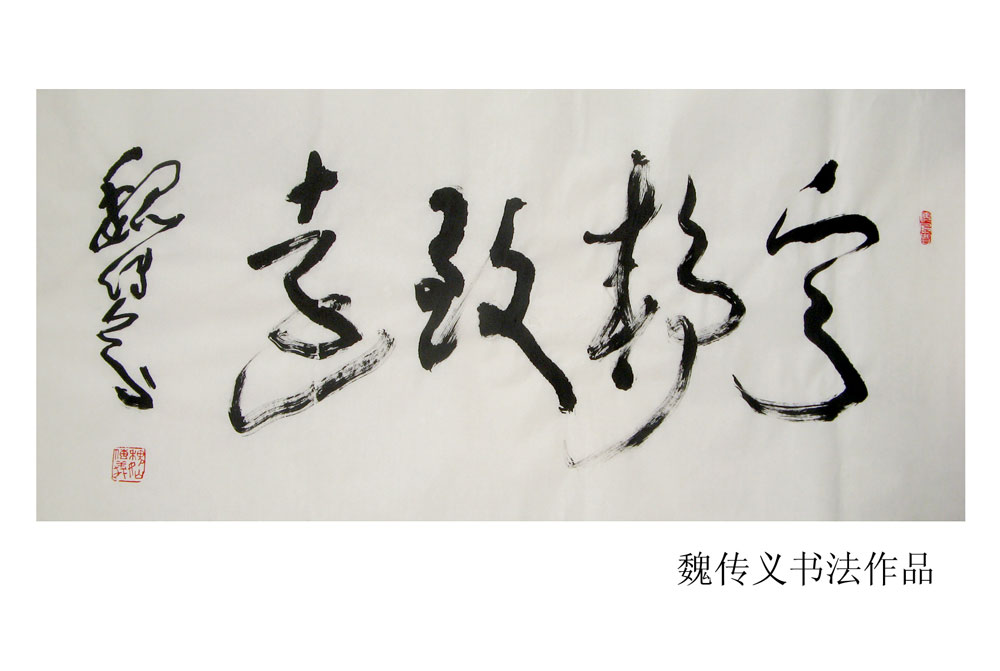 宁静致远
魏传义
魏传义书法作品